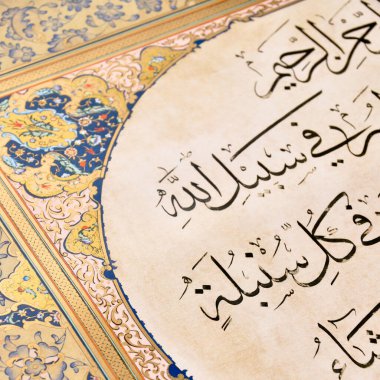 الرَّحِيمِ
فِي سَبِيلِ اللَّهِ
فِي كُلِّ سُنْبُلَةٍ